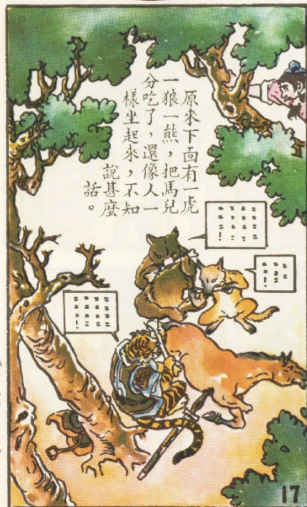 原來下面有一虎
一狼一熊，把馬兒
分吃了，還像人一
樣坐起來，不知
說甚麼
話。
17